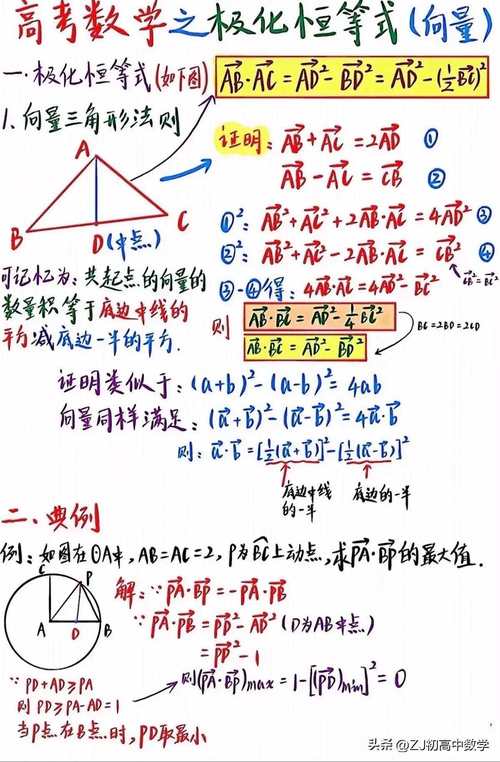 高考数学之极化恒等式(向量)
一.极化恒等式(如下图) $\overrightarrow{AB}\cdot\overrightarrow{AC}=\overrightarrow{AD}^2-\overrightarrow{BD}^2=\overrightarrow{AD}^2-(\frac{1}{2}\overrightarrow{BC})^2$
1.向量三角形法则
A
B
D(中点)
C
证明: $\overrightarrow{AB}+\overrightarrow{AC}=2\overrightarrow{AD}$ ①
$\overrightarrow{AB}-\overrightarrow{AC}=\overrightarrow{CB}$ ②
①²: $\overrightarrow{AB}^2+\overrightarrow{AC}^2+2\overrightarrow{AB}\cdot\overrightarrow{AC}=4\overrightarrow{AD}^2$ ③
②²: $\overrightarrow{AB}^2+\overrightarrow{AC}^2-2\overrightarrow{AB}\cdot\overrightarrow{AC}=\overrightarrow{CB}^2$ ④
$\overrightarrow{CB}^2=\overrightarrow{BC}^2$
③-④得: $4\overrightarrow{AB}\cdot\overrightarrow{AC}=4\overrightarrow{AD}^2-\overrightarrow{BC}^2$
则 $\overrightarrow{AB}\cdot\overrightarrow{BC}=\overrightarrow{AD}^2-\frac{1}{4}\overrightarrow{BC}^2$
BC=2BD=2CD
$\overrightarrow{AB}\cdot\overrightarrow{BC}=\overrightarrow{AD}^2-\overrightarrow{BD}^2$
可记忆为:共起点的向量的
数量积等于底边中线的
平方减底边一半的平方.
证明类似于: $(a+b)^2-(a-b)^2=4ab$
向量同样满足: $(\vec{a}+\vec{b})^2-(\vec{a}-\vec{b})^2=4\vec{a}\cdot\vec{b}$
则: $\vec{a}\cdot\vec{b}=[\frac{1}{2}(\vec{a}+\vec{b})]^2-[\frac{1}{2}(\vec{a}-\vec{b})]^2$
底边中线
的一半
底边的一半
二、典例
例:如图在⊙A中,AB=AC=2,P为BC上动点,求$\overrightarrow{PA}\cdot\overrightarrow{BP}$的最大值.
C
P
A
D
B
解:∵$\overrightarrow{PA}\cdot\overrightarrow{BP}=-\overrightarrow{PA}\cdot\overrightarrow{PB}$
∵$\overrightarrow{PA}\cdot\overrightarrow{PB}=\overrightarrow{PD}^2-\overrightarrow{AD}^2$(D为AB中点)
$=\overrightarrow{PD}^2-1$
∵ PD+AD≥PA
则 PD≥PA-AD=1
当P点在B点时,PD取最小
则$(\overrightarrow{PA}\cdot\overrightarrow{BP})_{max}=1-[(\overrightarrow{PD})_{min}]^2=0$
头条@ZJ初高中数学